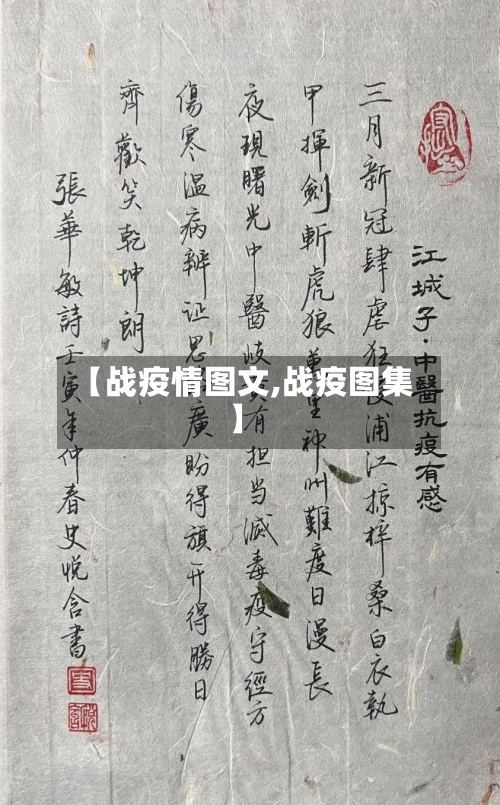 江城子·中醫抗疫有感
三月新冠肆虐狂 浦江掠梓桑白衣執
甲揮劍斬虎狼 神州難度日漫長
夜現曙光中醫岐 有担当滅毒疫守經方
傷寒温病辨证思 廣盼得旗开得勝日
齊歡笑乾坤朗
張華敏詩壬寅年仲春史悅含書
【战疫情图文,战疫图集
】